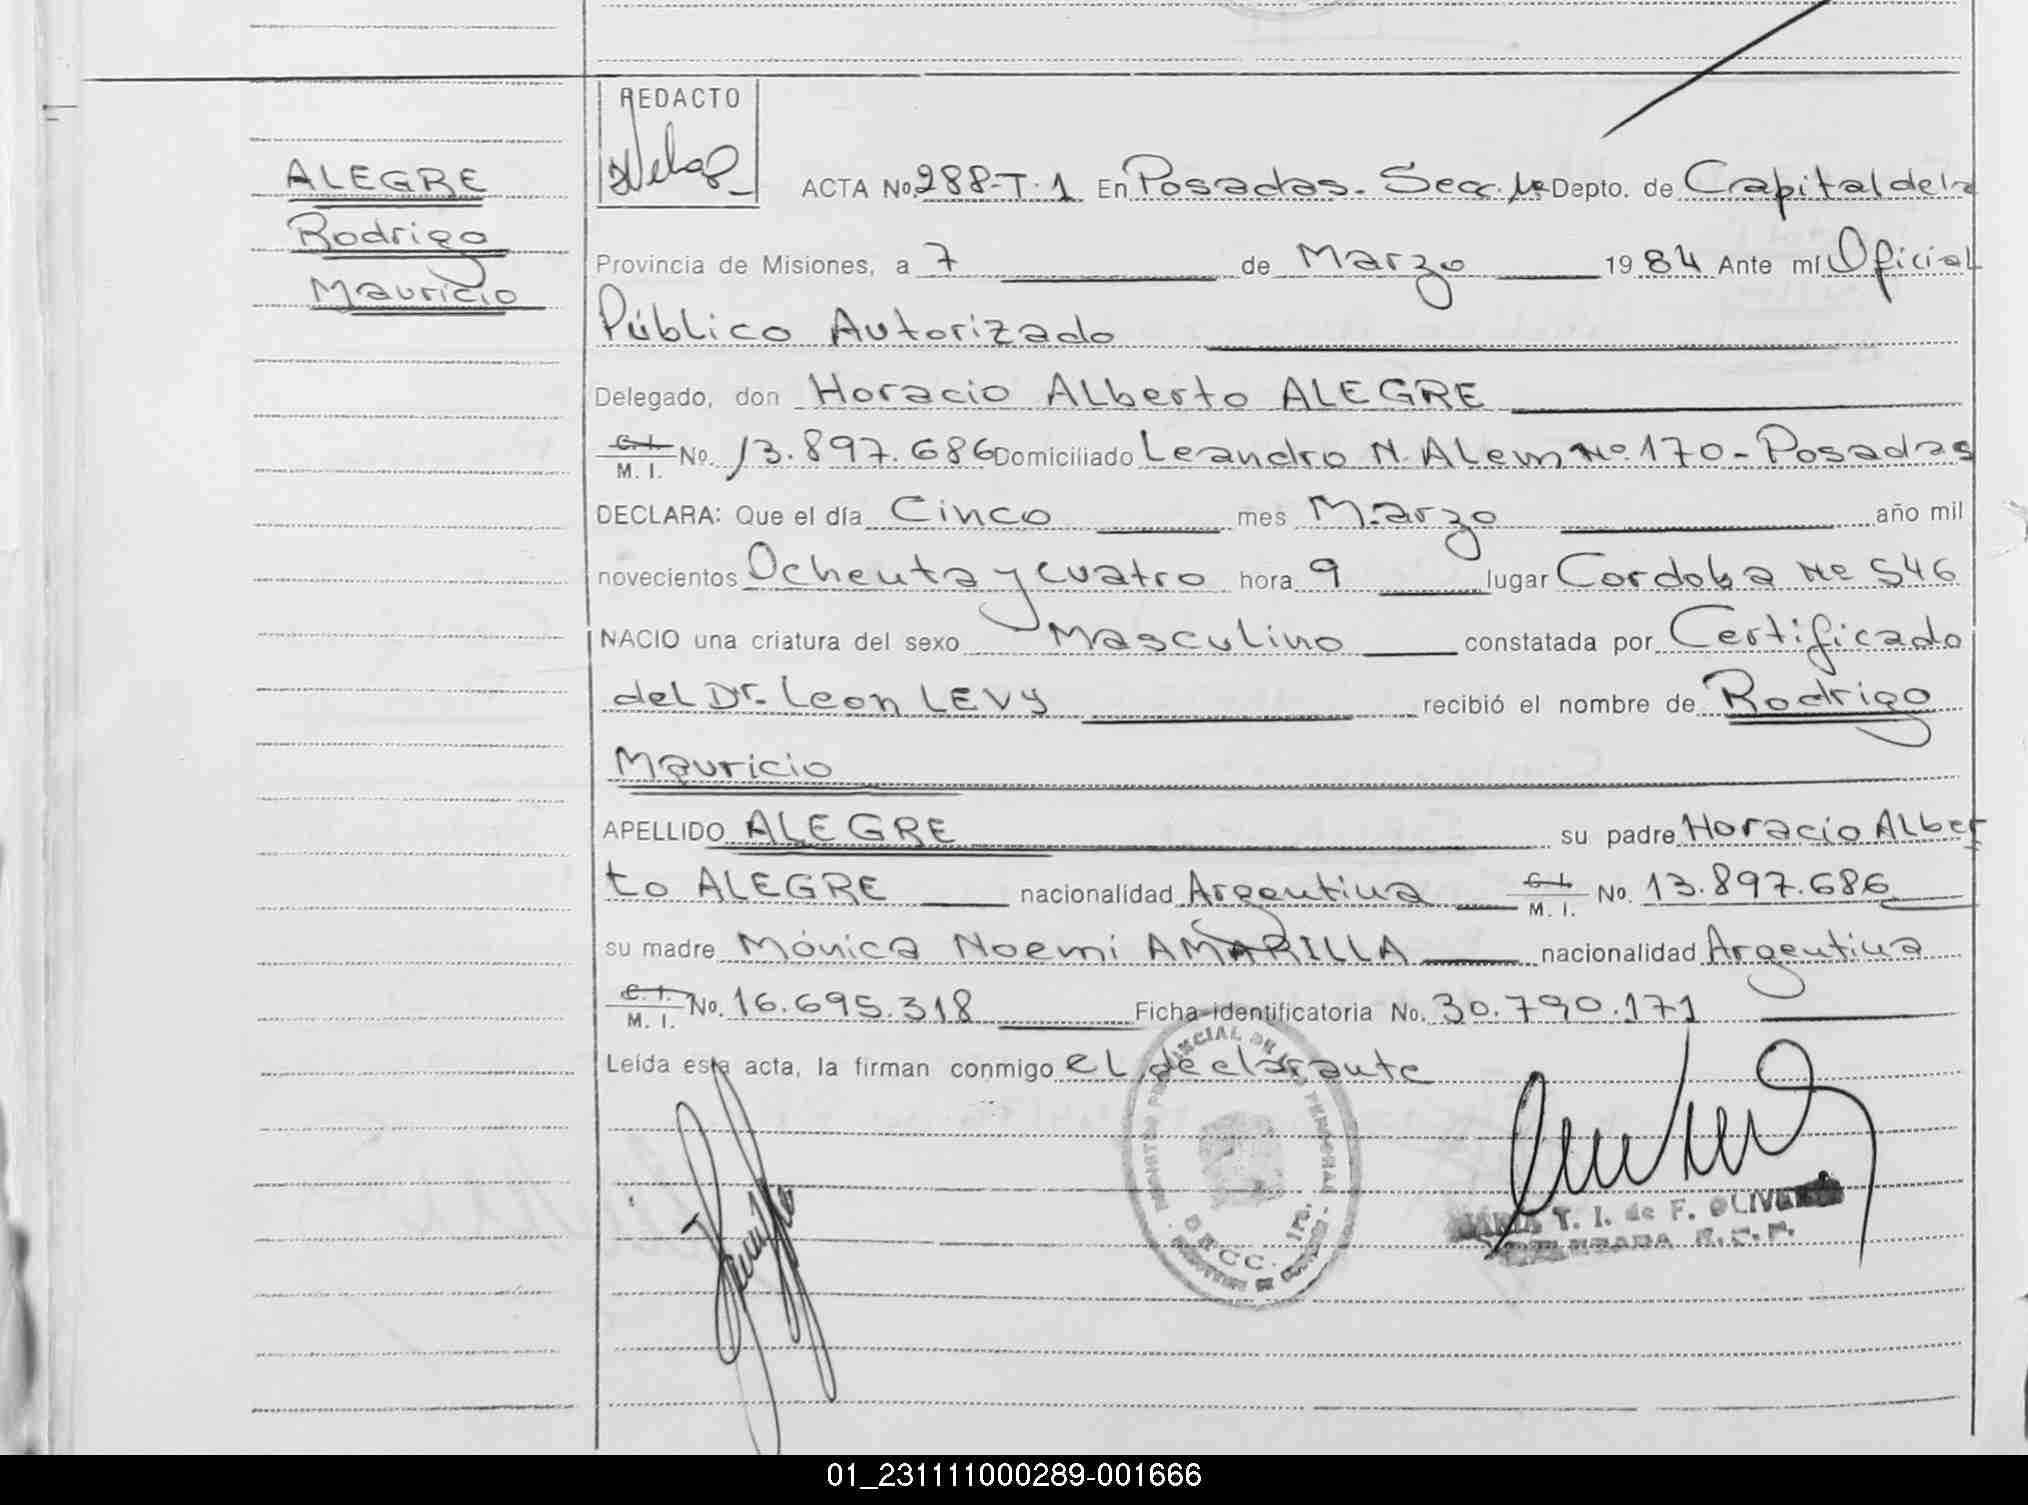 ALEGRE
Rodrigo
Mauricio
REDACTO
ACTA No. 288-T.1 En Posadas. Secc. 1a Depto. de Capital de la
Provincia de Misiones, a 7 de Marzo 19 84 Ante mí Oficial
Público Autorizado
Delegado, don Horacio Alberto ALEGRE
C. I.
M. I. No. 13.897.686 Domiciliado Leandro N. Alem No. 170 - Posadas
DECLARA: Que el día Cinco mes Marzo año mil
novecientos Ochenta y cuatro hora 9 lugar Cordoba No 546
NACIO una criatura del sexo Masculino constatada por Certificado
del Dr. Leon LEVY recibió el nombre de Rodrigo
Mauricio
APELLIDO ALEGRE su padre Horacio Alber
to ALEGRE nacionalidad Argentina C. I.
M. I. No. 13.897.686
su madre Mónica Noemi AMARILLA nacionalidad Argentina
C. I.
M. I. No. 16.695.318 Ficha identificatoria No. 30.790.171
Leída esta acta, la firman conmigo el declarante
MARIA T. I. de F. OLIVERA
01_231111000289-001666